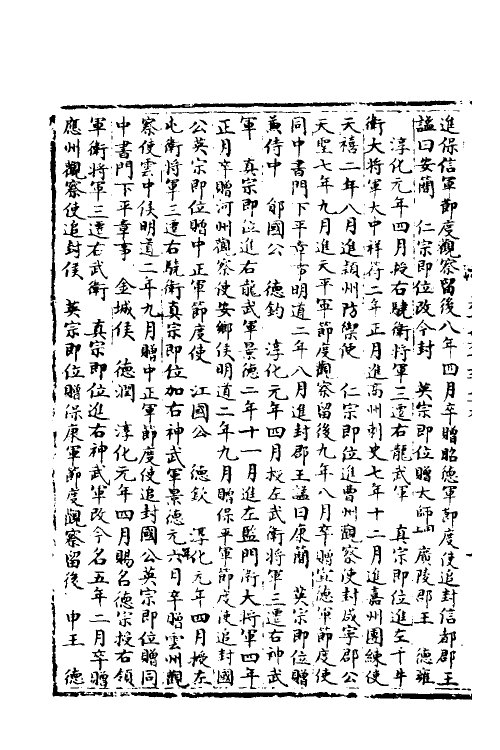 進保信軍節度觀察留後八年四月卒贈昭德軍節度使追封信都郡王
謚曰安簡　仁宗即位改今封　英宗即位贈大師　廣陵郡王　德雍
淳化元年四月授右驍衛將軍三遷右龍武軍　真宗即位進左千牛
衛大將軍大中祥符二年正月進高州刺史七年十二月進嘉州團練使
天禧二年八月進潁州防禦使　仁宗即位進曹州觀察使封咸寧郡公
天聖七年九月進天平軍節度觀察留後九年八月卒贈宣德軍節度使
同中書門下平章事明道二年八月進封郡王謚曰康簡　英宗即位贈
兼侍中　鄖國公　德鈞　淳化元年四月授左武衛將軍三遷右神武
軍　真宗即位進右龍武軍景德二年十一月進左監門衛大將軍四年
正月卒贈河州觀察使安鄉侯明道二年九月贈保平軍節度使追封國
公英宗即位贈中正軍節度使　江國公　德欽　淳化元年四月授左
屯衛將軍三遷右驍衛真宗即位加右神武軍景德元年六月卒贈雲州觀
察使雲中侯明道二年九月贈中正軍節度使追封國公英宗即位贈同
中書門下平章事　金城侯　德潤　淳化元年四月賜名德宗授右領
軍衛將軍三遷右武衛　真宗即位進右神武軍改今名五年二月卒贈
應州觀察使追封侯　英宗即位贈保康軍節度觀察留後　申王　德